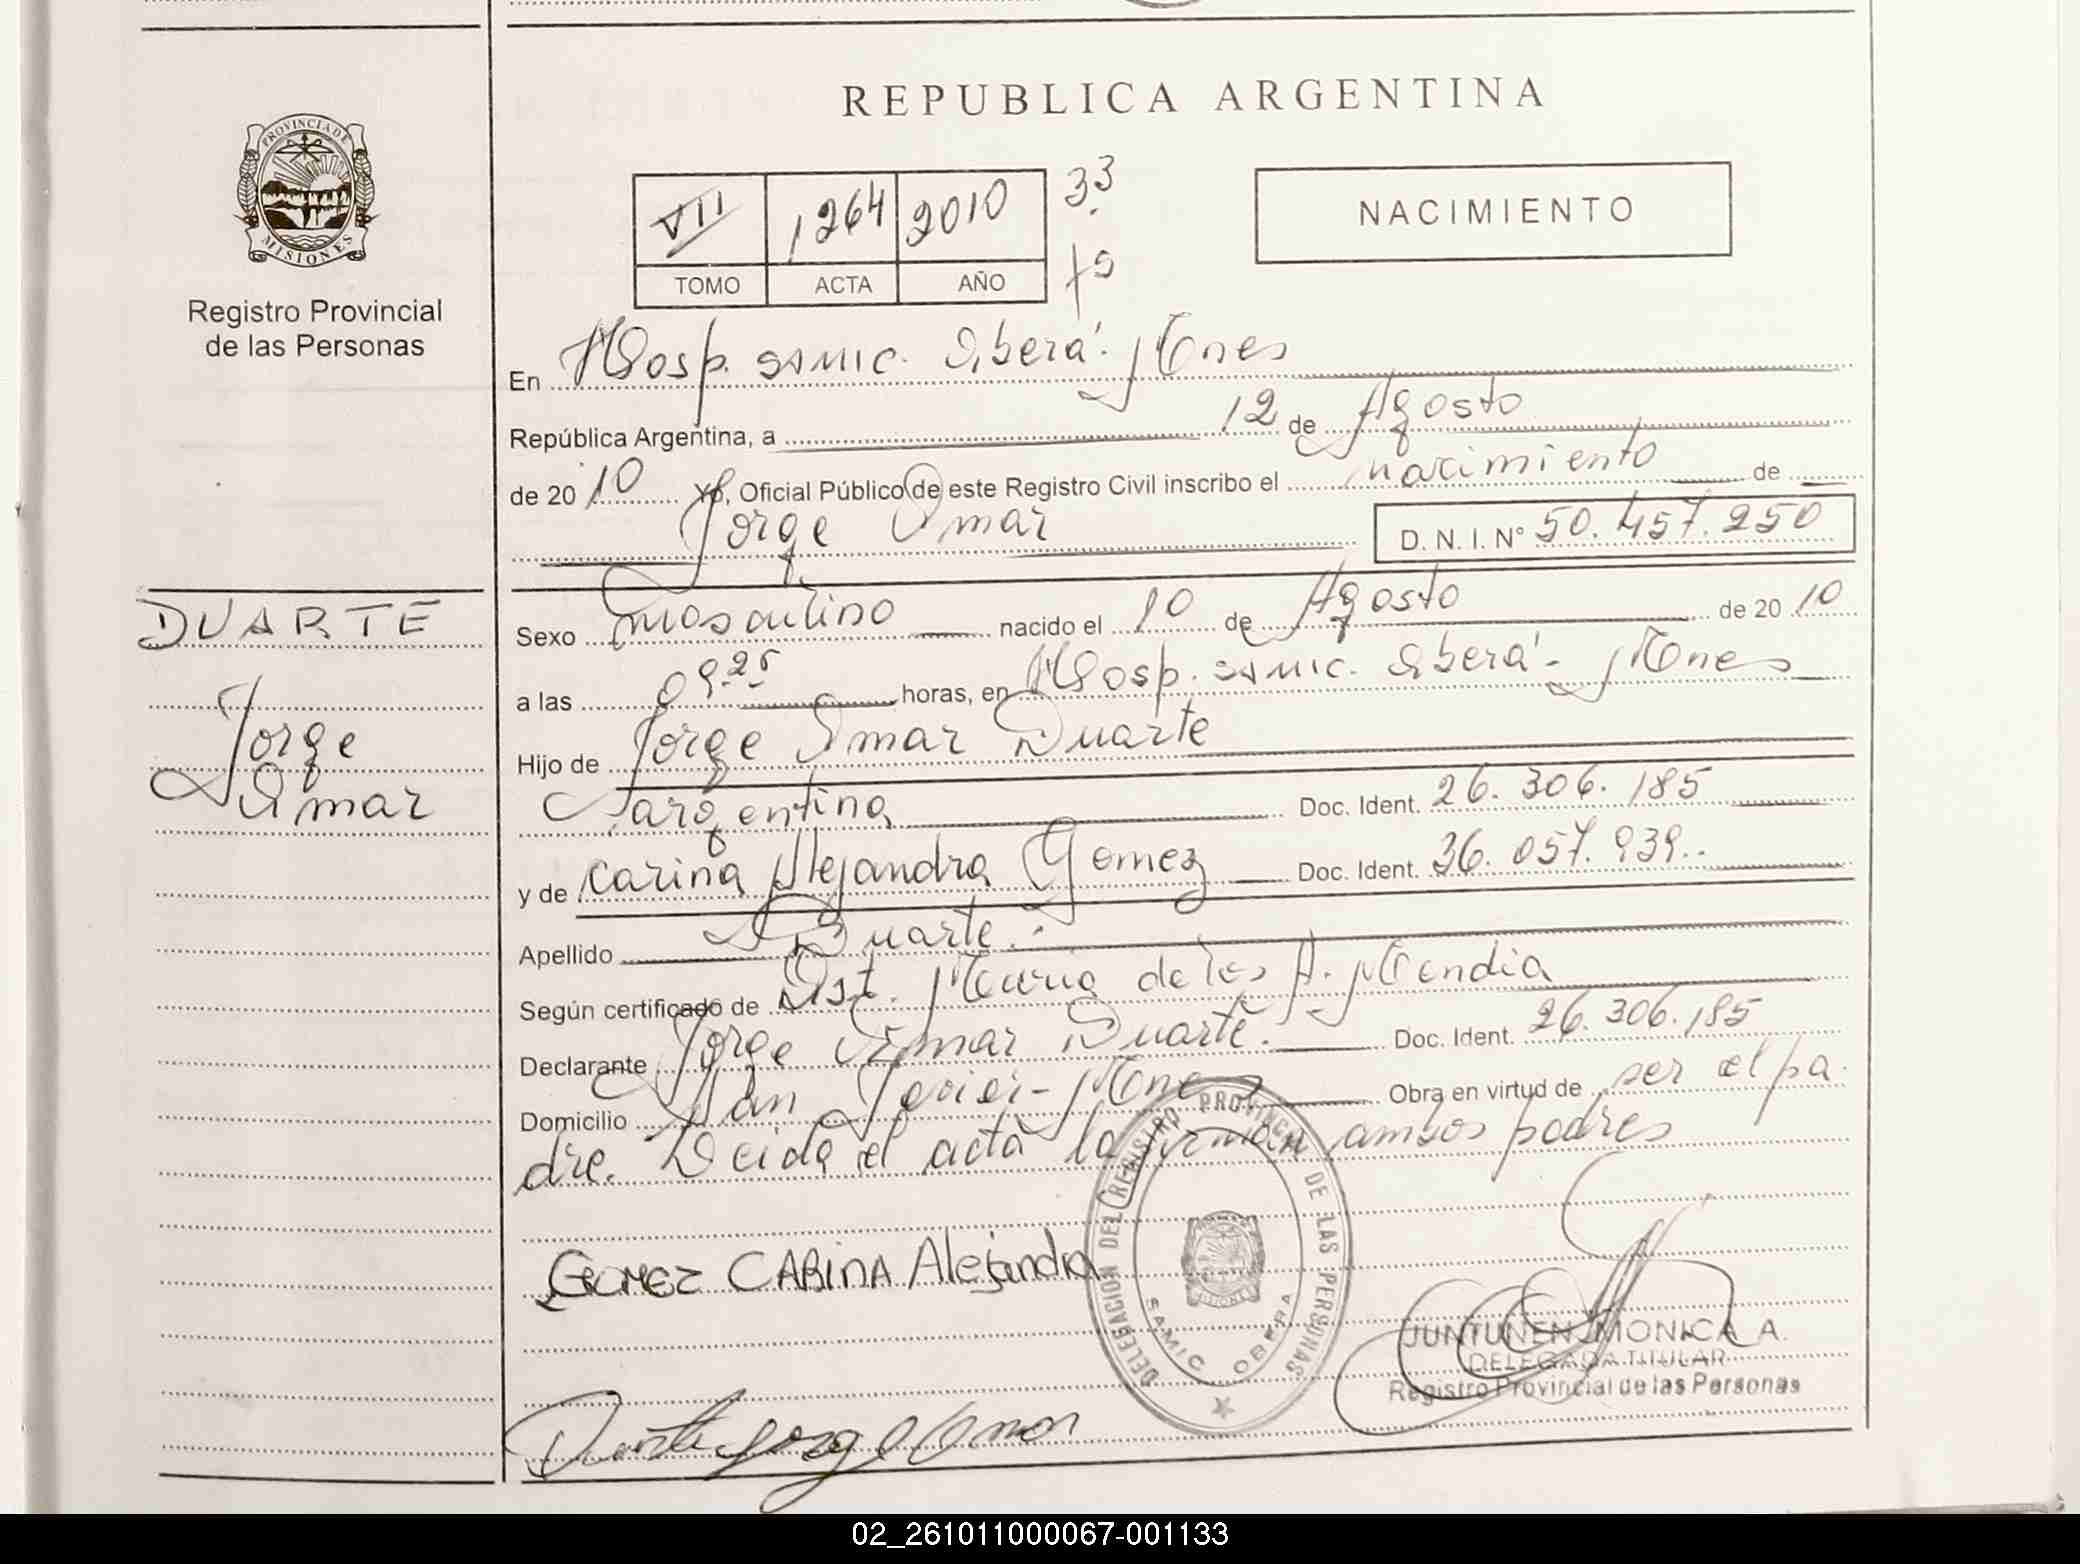 REPUBLICA ARGENTINA
PROVINCIA DE
MISIONES
Registro Provincial
de las Personas
VII 1264 2010 33
TOMO ACTA AÑO
NACIMIENTO
En Hosp. SAMIC. Oberá. Mones
República Argentina, a 12 de Agosto
de 2010 Yo, Oficial Público de este Registro Civil inscribo el nacimiento de
Jorge Omar
D. N. I. N° 50.457.250
DUARTE
Jorge
Omar
Sexo masculino nacido el 10 de Agosto de 2010
a las 09.25 horas, en Hosp. SAMIC. Oberá - Mones
Hijo de Jorge Omar Duarte
argentina Doc. Ident. 26.306.185
y de Carina Alejandra Gomez Doc. Ident. 36.057.939.
Apellido Duarte.
Según certificado de Obst. Maria de los A. Mendia
Declarante Jorge Omar Duarte. Doc. Ident. 26.306.185
Domicilio San Javier - Mones Obra en virtud de ser el pa
dre. Leida el acta la firman ambos padres
GOMEZ CARINA Alejandra
DELEGACION DEL REGISTRO PROVINCIAL DE LAS PERSONAS
SAMIC OBERA
MISIONES
JUNTUNEN MONICA A.
DELEGADA TITULAR
Registro Provincial de las Personas
Duarte Jorge Omar
02_261011000067-001133